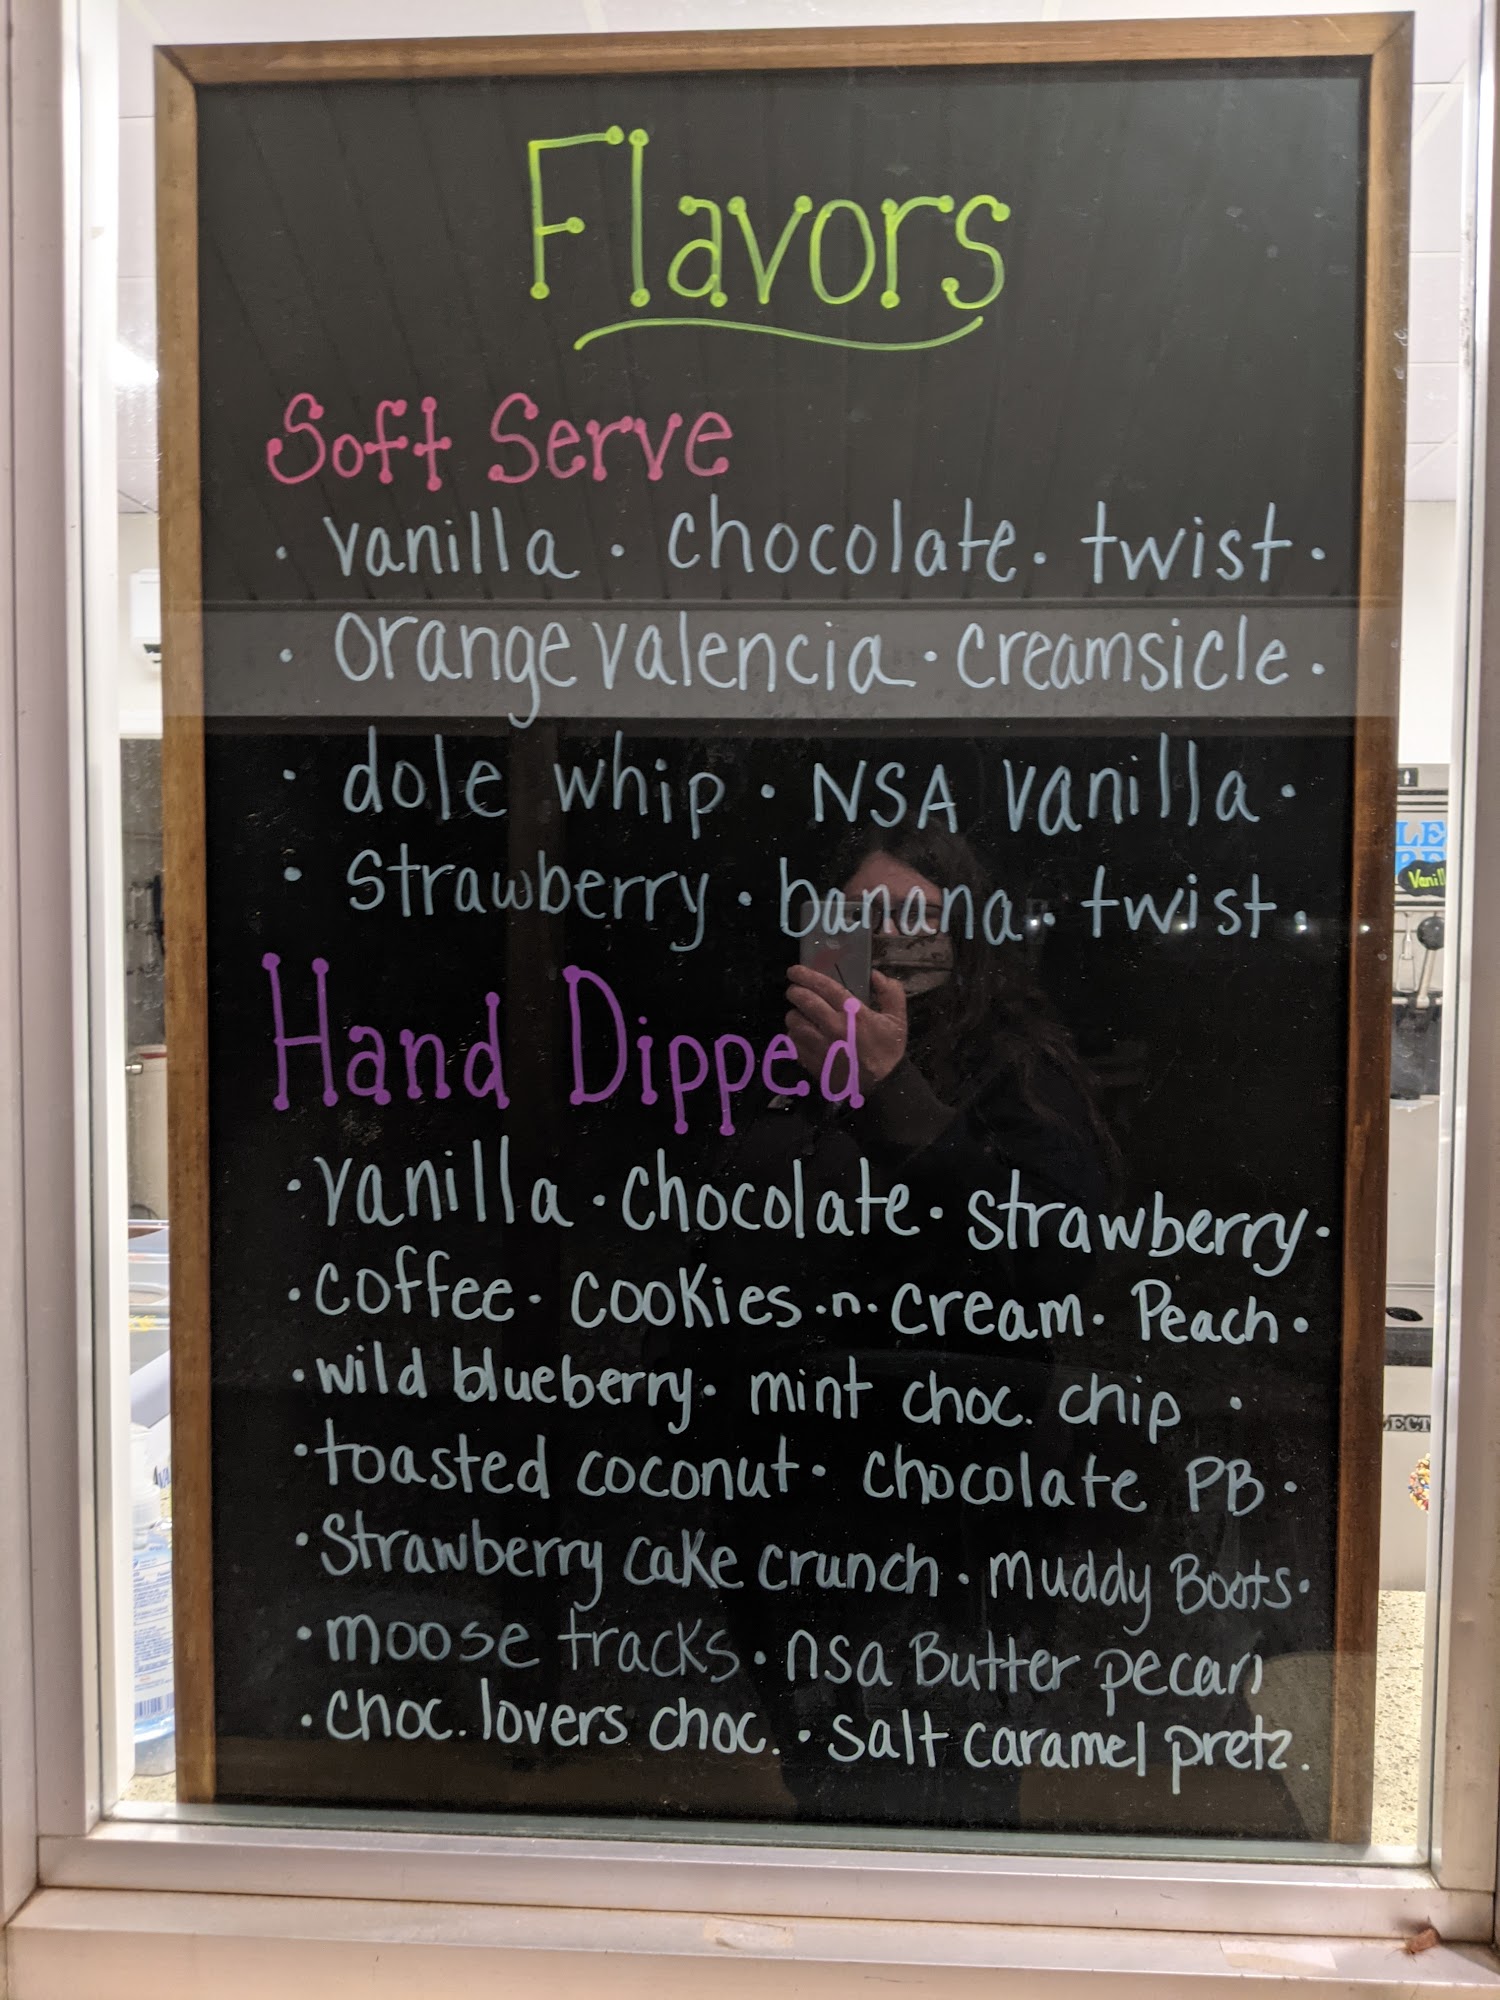 Flavors
Soft Serve
· vanilla · chocolate · twist ·
· orange valencia · creamsicle ·
· dole whip · NSA vanilla ·
· strawberry · banana · twist ·
Hand Dipped
· vanilla · chocolate · strawberry ·
· coffee · cookies · n · cream · Peach ·
· wild blueberry · mint choc. chip ·
· toasted coconut · chocolate PB ·
· Strawberry cake crunch · muddy Boots ·
· moose tracks · nsa Butter pecan
· choc. lovers choc. · salt caramel pretz.